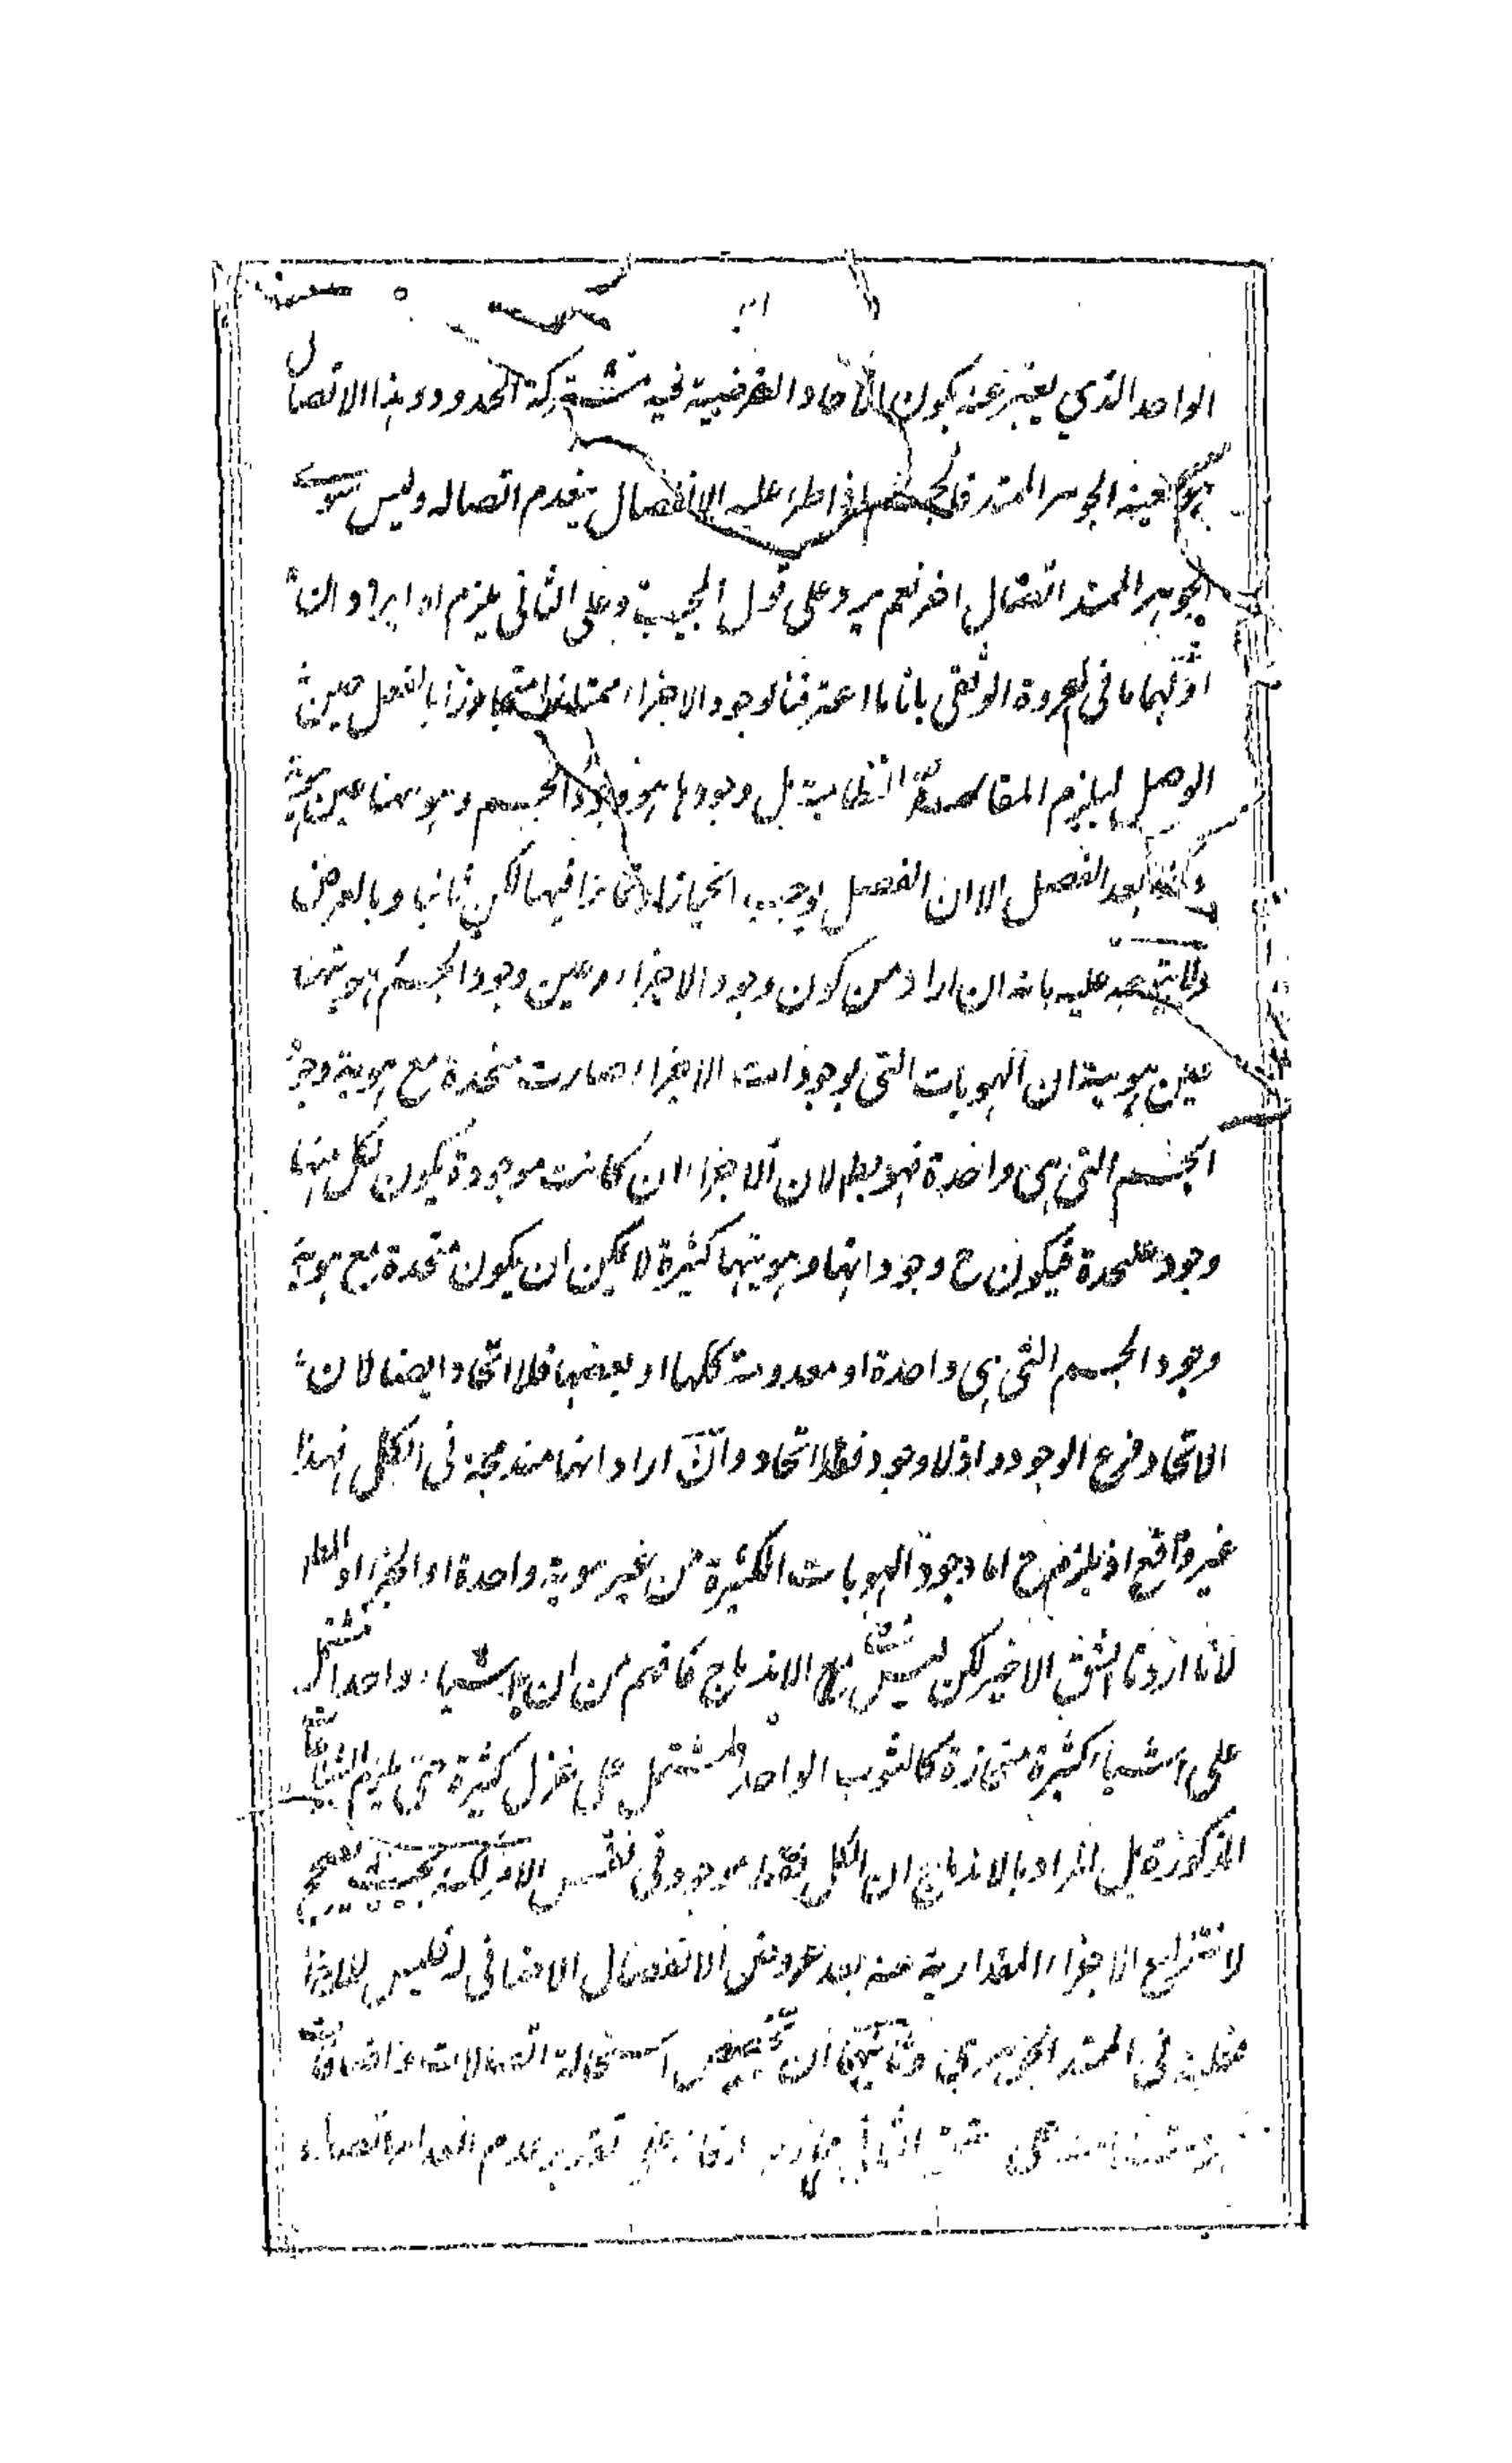 الواحد الذي يعتبر عنه بكون الآحاد الفرضية فيه مشتركة الحدود وهذا الاتصال
هو بعينه الجوهر الممتد فالجسم اذا طرء عليه الانفصال ينعدم اتصاله وليس سوى
الجوهر الممتد اتصال اخر نعم يرد على قول المجيب وعلى الثاني يلزم اه ايرادان
اولهما ما في العروة الوثقى بانا ما اعترفنا بوجود الاجزاء ممتازا متجاوزا بالفعل حين
الوصل ليلزم المفاسد النظامية بل وجودها هو وجود الجسم وهويتها عين هويته
وكذا بعد الفصل الا ان الفصل اوجب انحيازا وتمايزا فيها لكن ثانيا وبالعرض
ولا يتجه عليه بانه ان اراد من كون وجود الاجزاء عين وجود الجسم وهويتها
عين هويته ان الهويات التي لوجودات الاجزاء صارت متحدة مع هوية وجود
الجسم التي هي واحدة فهو بط لان الاجزاء ان كانت موجودة يكون لكل منها
وجود عليحدة فيكون ح وجوداتها وهويتها كثيرة لا يمكن ان يكون متحدة مع هوية
وجود الجسم التي هي واحدة او معدومة كلها او بعضها فلا اتحاد ايضا لان
الاتحاد فرع الوجود واذ لا وجود فلا اتحاد وان اراد انها مندمجة في الكل فهذا
غير واقع اذ يلزم ح اما وجود الهويات الكثيرة من غير هوية واحدة او الجزء او
لانا اردنا الشق الاخير لكن ليس مع الاندماج كما فهم من ان شيئا واحدا مشتمل
على اشياء كثيرة منحازة كالثوب الواحد المشتمل على غزل كثيرة حتى يلزم الشناعة
المذكورة بل المراد بالاندماج ان الكل فقط موجود في نفس الامر لكنه بحيث يصح
لانتزاع الاجزاء المقدارية عنه بعد عروض الانفصال الاضافي له فليس للاجزاء
فعلية في الممتد الجوهري وثانيهما ان تخصيص استحالة اتصالات
على تقدير عدم انعدام اتصاله